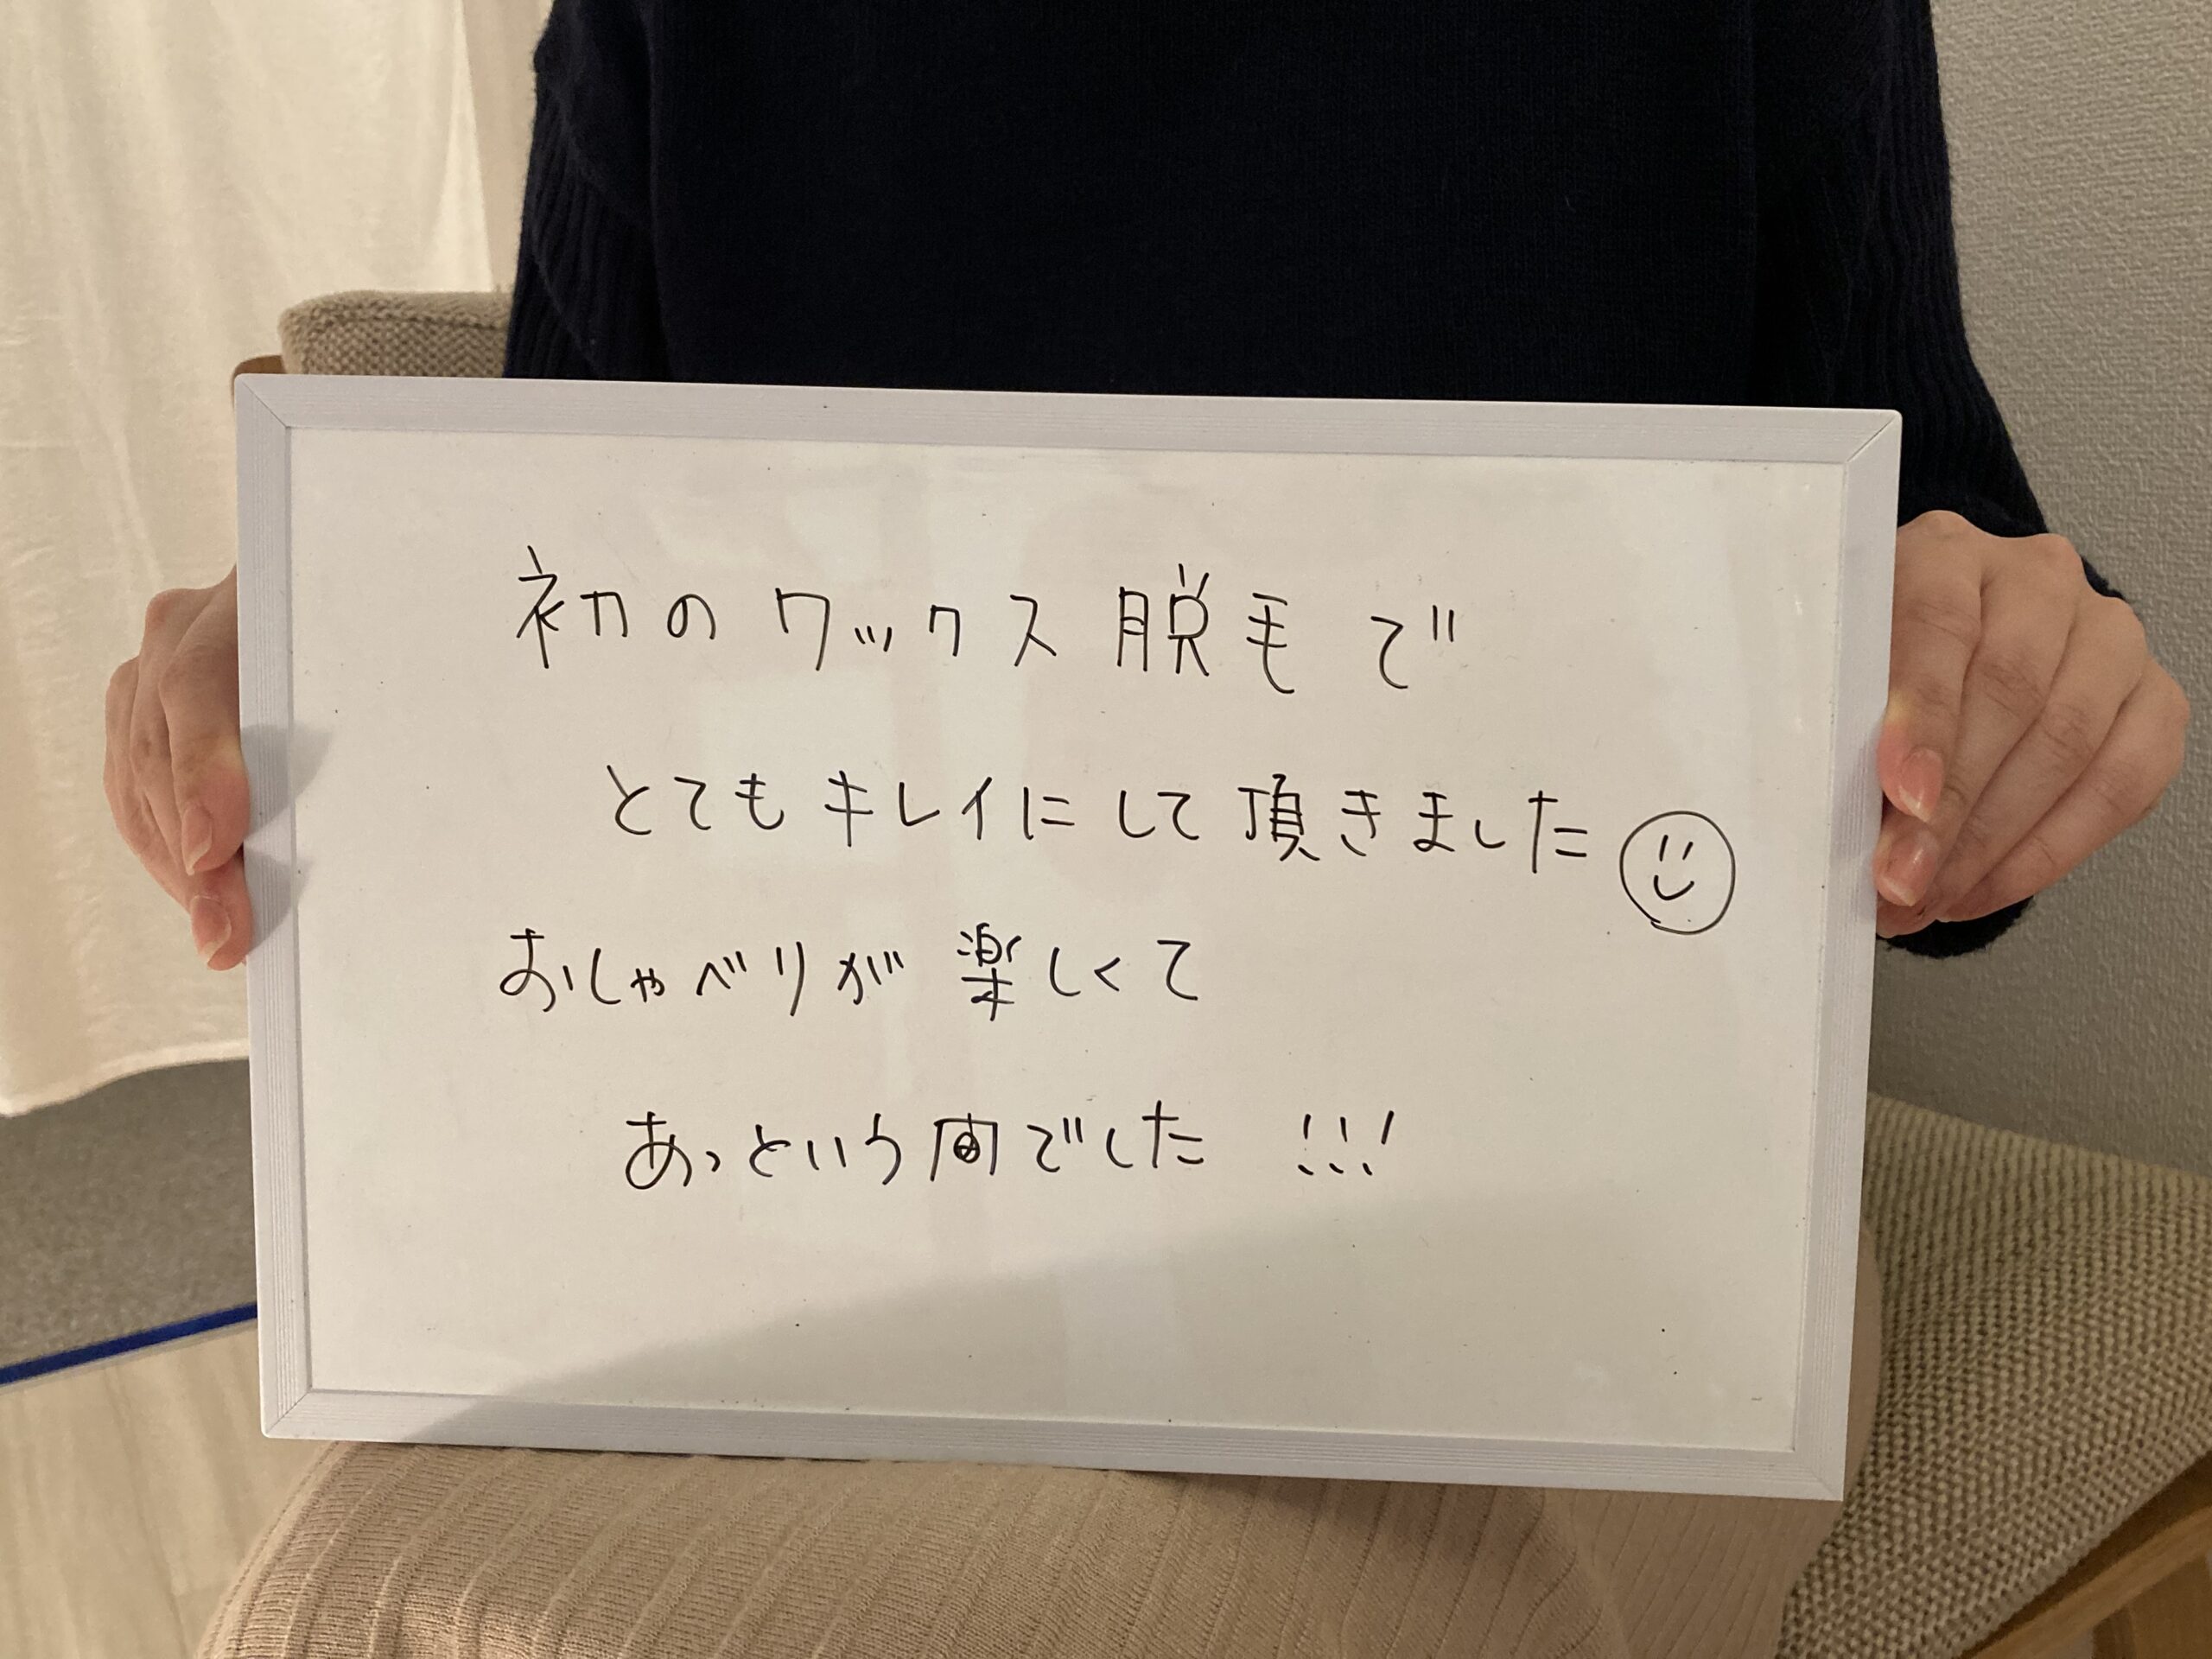 初のワックス脱毛で
とてもキレイにして頂きました
おしゃべりが楽しくて
あっという間でした !!!